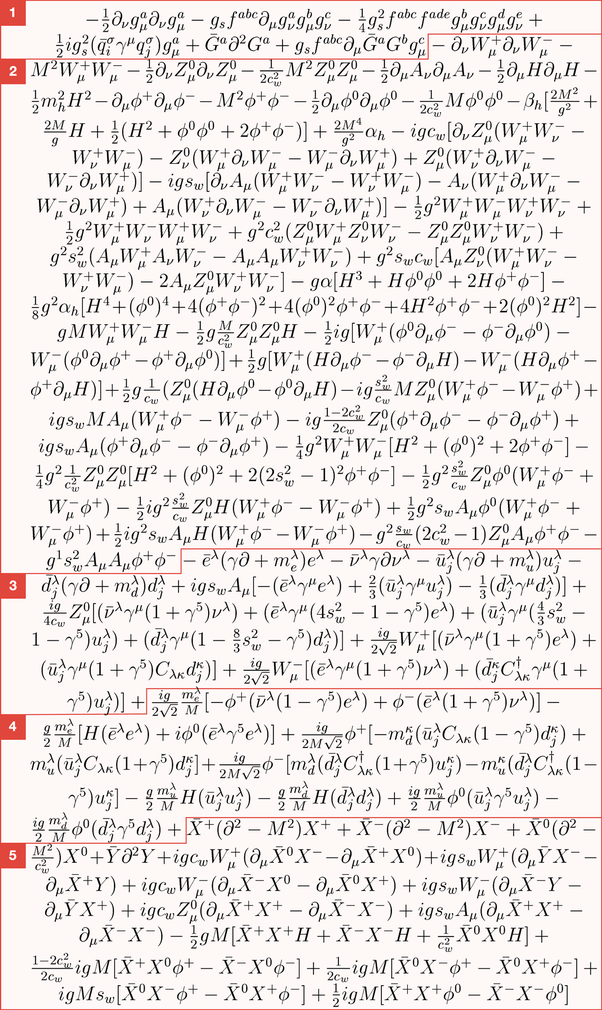 1 −½∂_νg^a_μ∂_νg^a_μ − g_sf^{abc}∂_μg^a_νg^b_μg^c_ν − ¼g²_sf^{abc}f^{ade}g^b_μg^c_νg^d_μg^e_ν +
½ig²_s(q̄^σ_iγ^μq^σ_j)g^a_μ + Ḡ^a∂²G^a + g_sf^{abc}∂_μḠ^aG^bg^c_μ − ∂_νW^+_μ∂_νW^-_μ −
2 M²W^+_μW^-_μ − ½∂_νZ^0_μ∂_νZ^0_μ − 1/(2c²_w) M²Z^0_μZ^0_μ − ½∂_μA_ν∂_μA_ν − ½∂_μH∂_μH −
½m²_hH² − ∂_μφ^+∂_μφ^- − M²φ^+φ^- − ½∂_μφ^0∂_μφ^0 − 1/(2c²_w) Mφ^0φ^0 − β_h[2M²/g² +
2M/g H + ½(H² + φ^0φ^0 + 2φ^+φ^-)] + 2M⁴/g² α_h − igc_w[∂_νZ^0_μ(W^+_μW^-_ν −
W^+_νW^-_μ) − Z^0_ν(W^+_μ∂_νW^-_μ − W^-_μ∂_νW^+_μ) + Z^0_μ(W^+_ν∂_νW^-_μ −
W^-_ν∂_νW^+_μ)] − igs_w[∂_νA_μ(W^+_μW^-_ν − W^+_νW^-_μ) − A_ν(W^+_μ∂_νW^-_μ −
W^-_μ∂_νW^+_μ) + A_μ(W^+_ν∂_νW^-_μ − W^-_ν∂_νW^+_μ)] − ½g²W^+_μW^-_μW^+_νW^-_ν +
½g²W^+_μW^-_νW^+_μW^-_ν + g²c²_w(Z^0_μW^+_μZ^0_νW^-_ν − Z^0_μZ^0_μW^+_νW^-_ν) +
g²s²_w(A_μW^+_μA_νW^-_ν − A_μA_μW^+_νW^-_ν) + g²s_wc_w[A_μZ^0_ν(W^+_μW^-_ν −
W^+_νW^-_μ) − 2A_μZ^0_μW^+_νW^-_ν] − gα[H³ + Hφ^0φ^0 + 2Hφ^+φ^-] −
⅛g²α_h[H⁴+(φ^0)⁴+4(φ^+φ^-)²+4(φ^0)²φ^+φ^-+4H²φ^+φ^-+2(φ^0)²H²]−
gMW^+_μW^-_μH − ½g M/c²_w Z^0_μZ^0_μH − ½ig[W^+_μ(φ^0∂_μφ^- − φ^-∂_μφ^0) −
W^-_μ(φ^0∂_μφ^+−φ^+∂_μφ^0)]+½g[W^+_μ(H∂_μφ^-−φ^-∂_μH)−W^-_μ(H∂_μφ^+−
φ^+∂_μH)]+½g 1/c_w (Z^0_μ(H∂_μφ^0−φ^0∂_μH)−ig s²_w/c_w MZ^0_μ(W^+_μφ^-−W^-_μφ^+)+
igs_wMA_μ(W^+_μφ^- − W^-_μφ^+) − ig (1−2c²_w)/(2c_w) Z^0_μ(φ^+∂_μφ^- − φ^-∂_μφ^+) +
igs_wA_μ(φ^+∂_μφ^- − φ^-∂_μφ^+) − ¼g²W^+_μW^-_μ[H² + (φ^0)² + 2φ^+φ^-] −
¼g² 1/c²_w Z^0_μZ^0_μ[H² + (φ^0)² + 2(2s²_w − 1)²φ^+φ^-] − ½g² s²_w/c_w Z^0_μφ^0(W^+_μφ^- +
W^-_μφ^+) − ½ig² s²_w/c_w Z^0_μH(W^+_μφ^- − W^-_μφ^+) + ½g²s_wA_μφ^0(W^+_μφ^- +
W^-_μφ^+) + ½ig²s_wA_μH(W^+_μφ^- − W^-_μφ^+) − g² s_w/c_w (2c²_w − 1)Z^0_μA_μφ^+φ^- −
g¹s²_wA_μA_μφ^+φ^- − ē^λ(γ∂ + m^λ_e)e^λ − ν̄^λγ∂ν^λ − ū^λ_j(γ∂ + m^λ_u)u^λ_j −
3 d̄^λ_j(γ∂ + m^λ_d)d^λ_j + igs_wA_μ[−(ē^λγ^μe^λ) + ⅔(ū^λ_jγ^μu^λ_j) − ⅓(d̄^λ_jγ^μd^λ_j)] +
ig/(4c_w) Z^0_μ[(ν̄^λγ^μ(1 + γ⁵)ν^λ) + (ē^λγ^μ(4s²_w − 1 − γ⁵)e^λ) + (ū^λ_jγ^μ(4/3 s²_w −
1 − γ⁵)u^λ_j) + (d̄^λ_jγ^μ(1 − 8/3 s²_w − γ⁵)d^λ_j)] + ig/(2√2) W^+_μ[(ν̄^λγ^μ(1 + γ⁵)e^λ) +
(ū^λ_jγ^μ(1 + γ⁵)C_{λκ}d^κ_j)] + ig/(2√2) W^-_μ[(ē^λγ^μ(1 + γ⁵)ν^λ) + (d̄^κ_jC^†_{λκ}γ^μ(1 +
γ⁵)u^λ_j)] + ig/(2√2) m^λ_e/M [−φ^+(ν̄^λ(1 − γ⁵)e^λ) + φ^-(ē^λ(1 + γ⁵)ν^λ)] −
4 g/2 m^λ_e/M [H(ē^λe^λ) + iφ^0(ē^λγ⁵e^λ)] + ig/(2M√2) φ^+[−m^κ_d(ū^λ_jC_{λκ}(1 − γ⁵)d^κ_j) +
m^λ_u(ū^λ_jC_{λκ}(1+γ⁵)d^κ_j] + ig/(2M√2) φ^-[m^λ_d(d̄^λ_jC^†_{λκ}(1+γ⁵)u^κ_j) − m^κ_u(d̄^λ_jC^†_{λκ}(1−
γ⁵)u^κ_j] − g/2 m^λ_u/M H(ū^λ_ju^λ_j) − g/2 m^λ_d/M H(d̄^λ_jd^λ_j) + ig/2 m^λ_u/M φ^0(ū^λ_jγ⁵u^λ_j) −
ig/2 m^λ_d/M φ^0(d̄^λ_jγ⁵d^λ_j) + X̄^+(∂² − M²)X^+ + X̄^-(∂² − M²)X^- + X̄^0(∂² −
5 M²/c²_w)X^0 + Ȳ∂²Y + igc_wW^+_μ(∂_μX̄^0X^- − ∂_μX̄^+X^0) + igs_wW^+_μ(∂_μȲX^- −
∂_μX̄^+Y) + igc_wW^-_μ(∂_μX̄^-X^0 − ∂_μX̄^0X^+) + igs_wW^-_μ(∂_μX̄^-Y −
∂_μȲX^+) + igc_wZ^0_μ(∂_μX̄^+X^+ − ∂_μX̄^-X^-) + igs_wA_μ(∂_μX̄^+X^+ −
∂_μX̄^-X^-) − ½gM[X̄^+X^+H + X̄^-X^-H + 1/c²_w X̄^0X^0H] +
(1−2c²_w)/(2c_w) igM[X̄^+X^0φ^+ − X̄^-X^0φ^-] + 1/(2c_w) igM[X̄^0X^-φ^+ − X̄^0X^+φ^-] +
igMs_w[X̄^0X^-φ^+ − X̄^0X^+φ^-] + ½igM[X̄^+X^+φ^0 − X̄^-X^-φ^0]